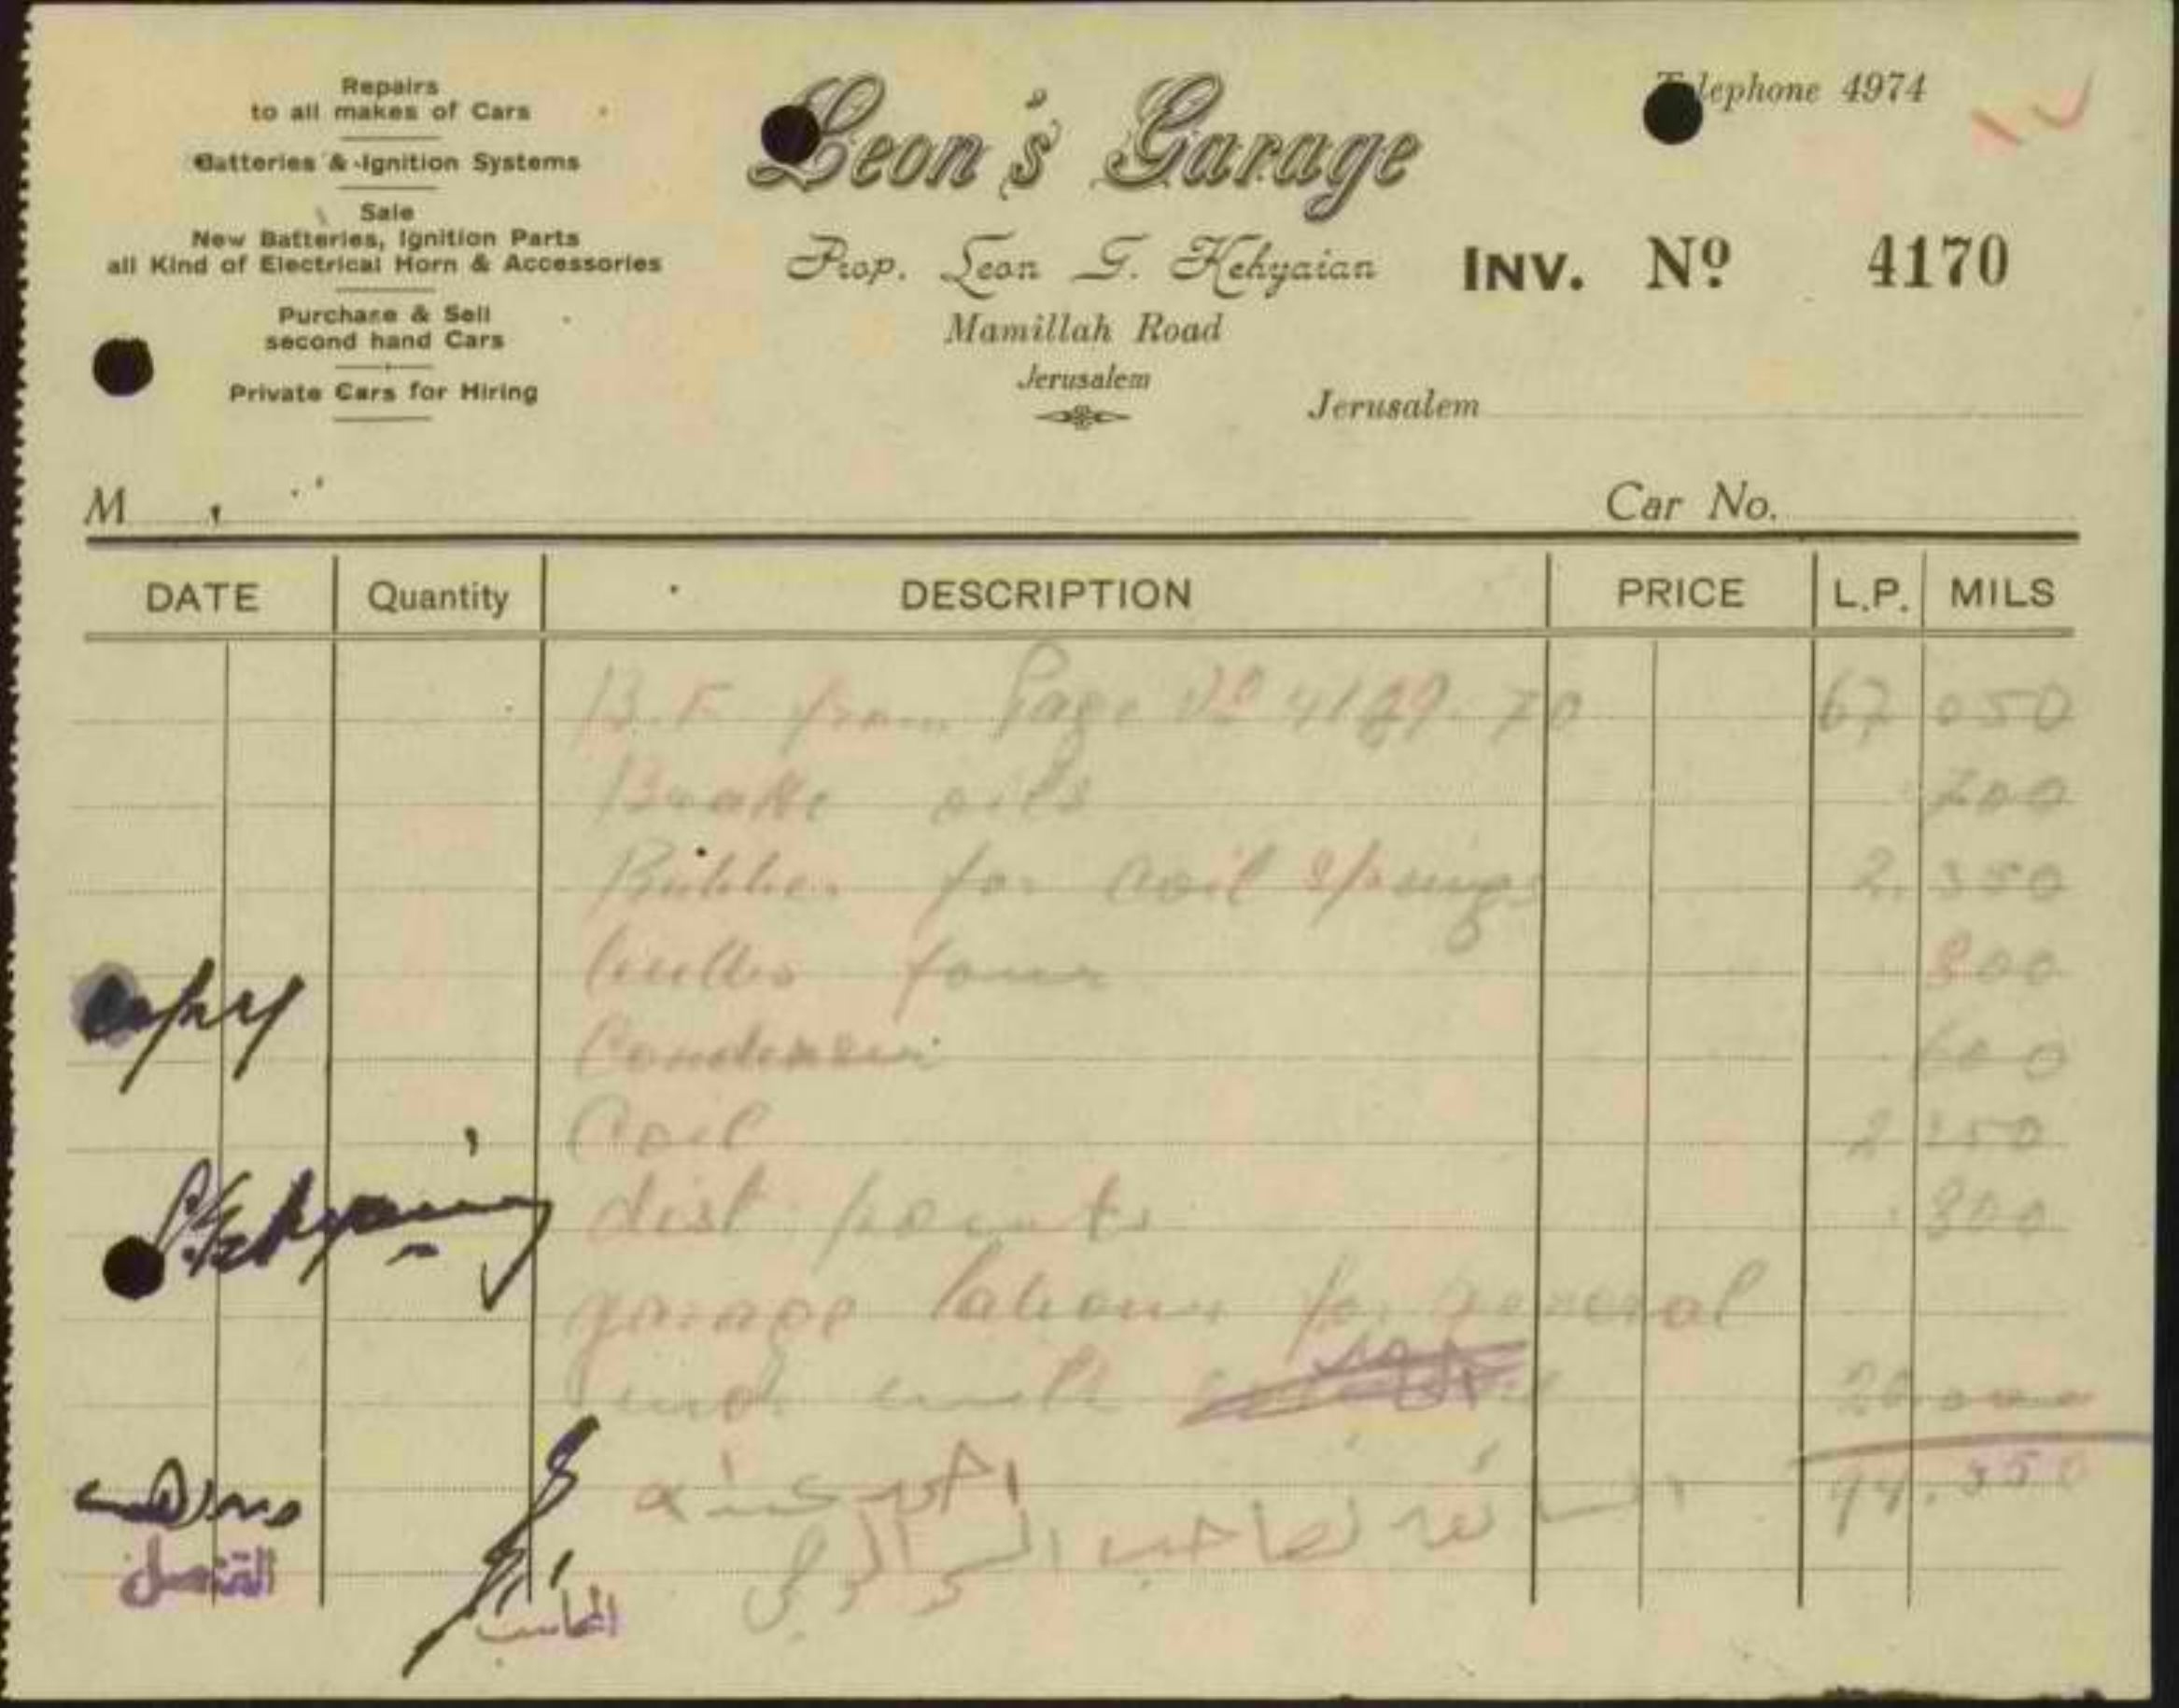 Repairs
to all makes of Cars
Batteries & Ignition Systems
Sale
New Batteries, Ignition Parts
all Kind of Electrical Horn & Accessories
Purchase & Sell
second hand Cars
Private Cars for Hiring
Leon's Garage
Prop. Leon G. Kehyaian
Mamillah Road
Jerusalem
Telephone 4974
INV. Nº 4170
Jerusalem
M
Car No.
DATE Quantity DESCRIPTION PRICE L.P. MILS
B.F from Page No 4169-70 67 050
Brake oils 700
Rubber for coil springs 2. 350
bulbs four 800
Copy
Condenser 600
Coil 2 250
dist points 800
garage labour for general
20 000
94.550
القنصل
المحاسب